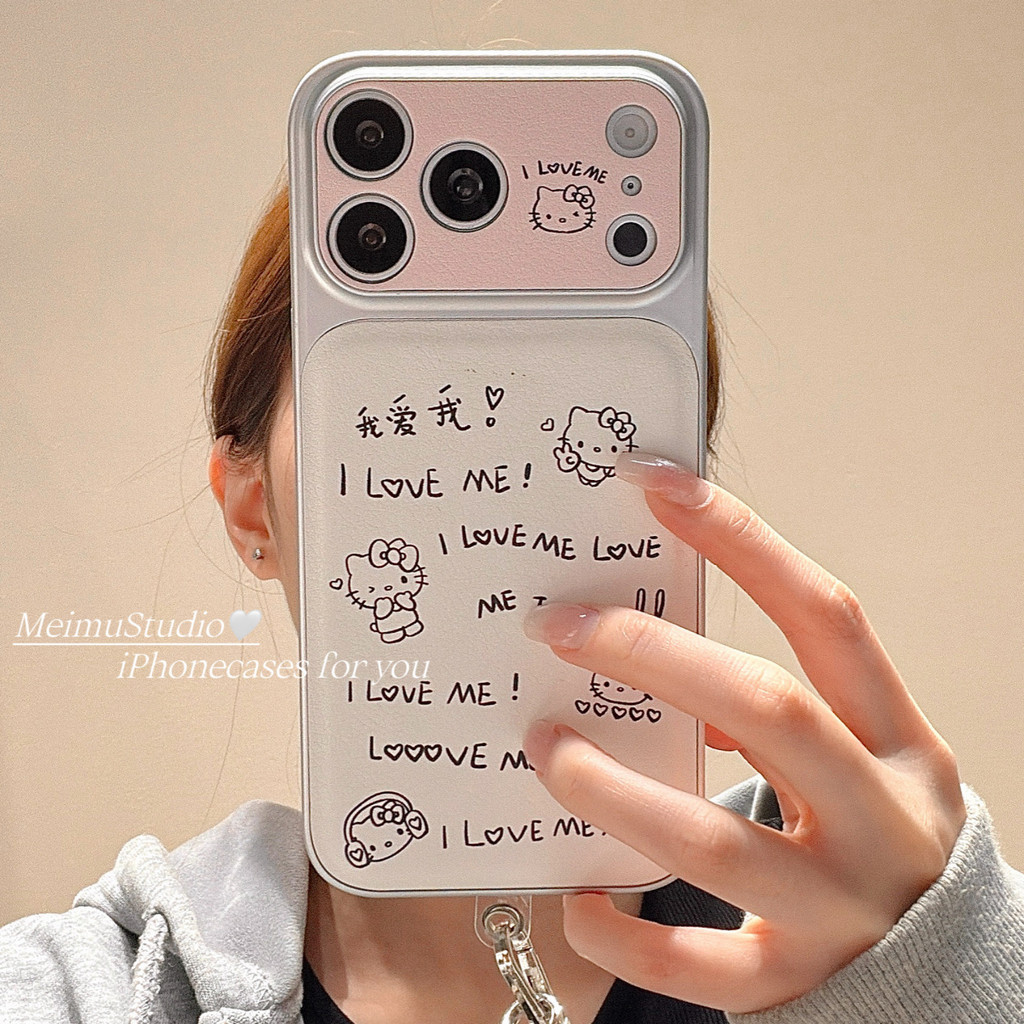 I LOVE ME
我爱我!
I LOVE ME!
I LOVE ME LOVE
ME
MeimuStudio🤍
iPhonecases for you
I LOVE ME!
LOOOVE
I LOVE ME!